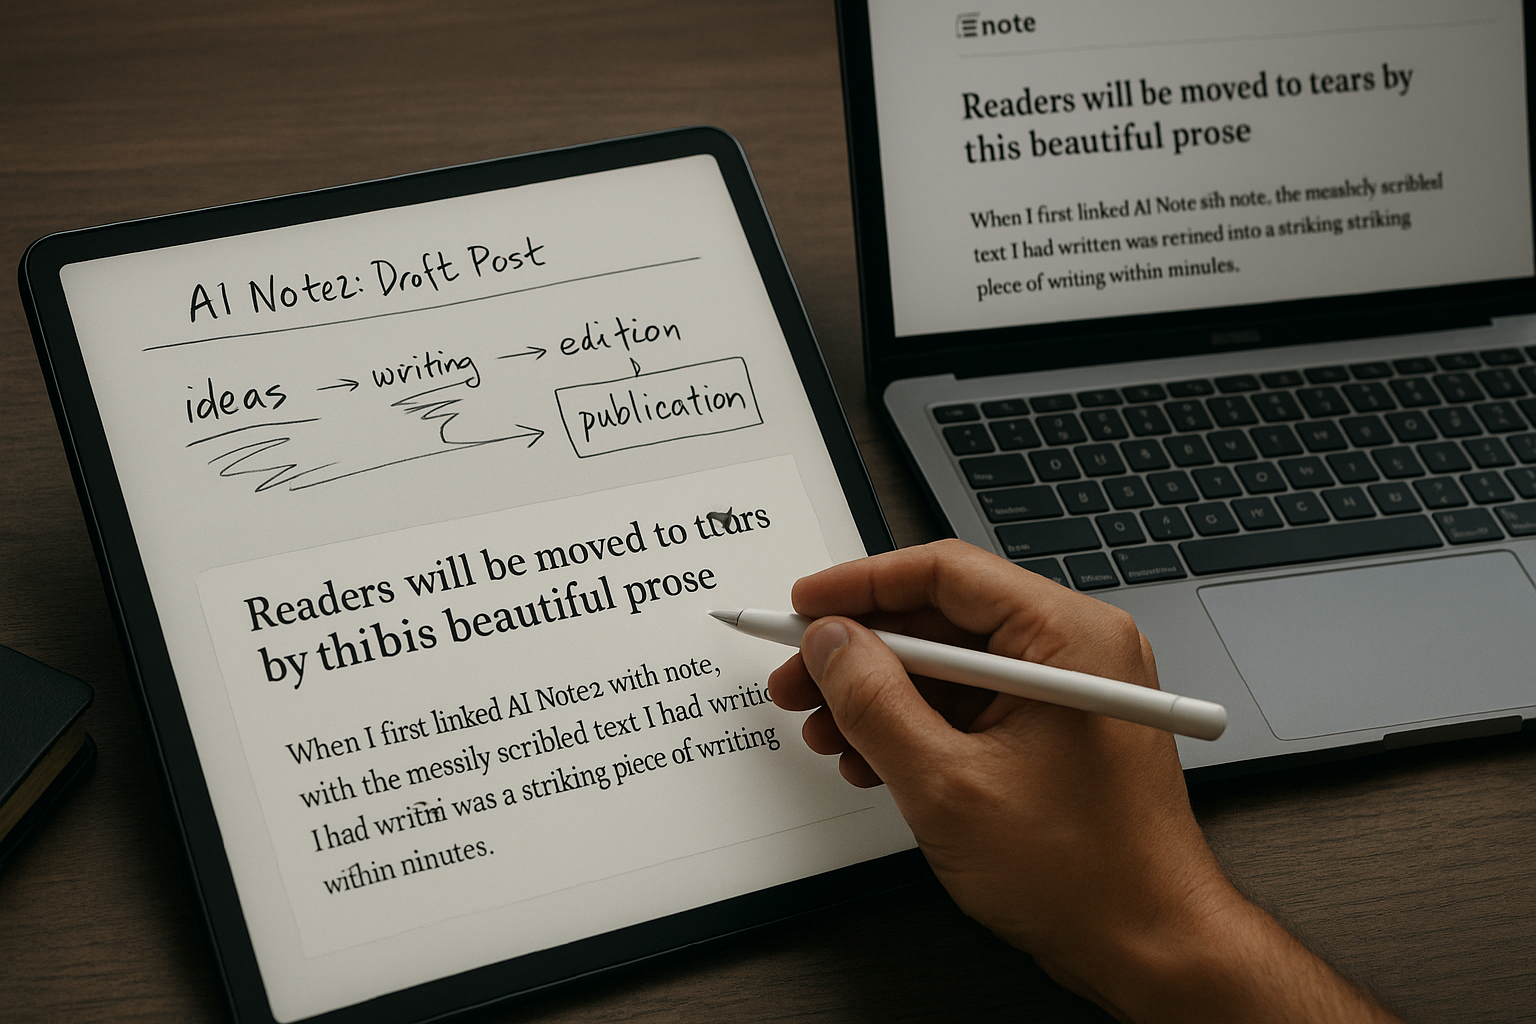 AI Note2: Droft Post
ideas → writing → edition
publication
Readers will be moved to tears
by thibis beautiful prose
When I first linked AI Note2 with note,
with the messily scribled text I had writic
I had writm was a striking piece of writing
within ninutes.
note
Readers will be moved to tears by
this beautiful prose
When I first linked AI Note sih note, the meashcly scribled
text I had written was rerined into a striking striking
plece of writing within minules.